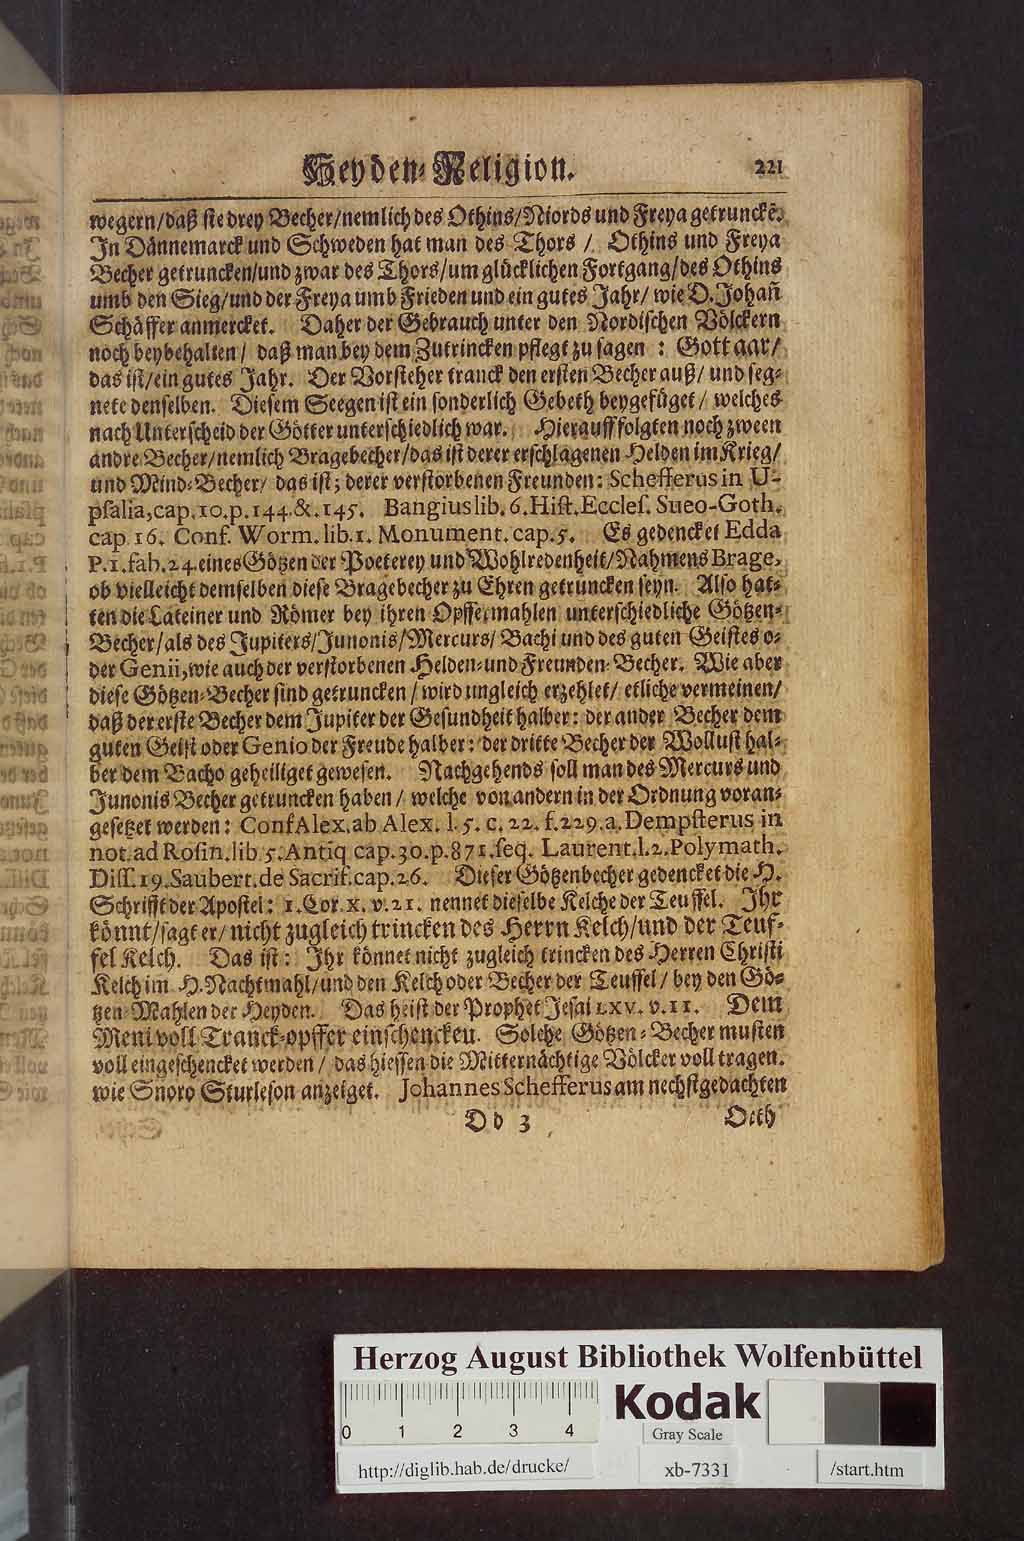 Heyden-Religion. 221
wegern/daß sie drey Becher/nemlich des Othins/Niords und Freya getrunckē.
In Dännemarck und Schweden hat man des Thors / Othins und Freya
Becher getruncken/und zwar des Thors/um glücklichen Fortgang/des Othins
umb den Sieg/und der Freya umb Frieden und ein gutes Jahr/ wie D. Johañ
Schäffer anmercket. Daher der Gebrauch unter den Nordischen Völckern
noch beybehalten/ daß man bey dem Zutrincken pflegt zu sagen : Gott aar/
das ist/ein gutes Jahr. Der Vorsteher tranck den ersten Becher auß/ und seg-
nete denselben. Diesem Seegen ist ein sonderlich Gebeth beygefüget/ welches
nach Unterscheid der Götter unterschiedlich war. Hierauff folgten noch zween
andre Becher/nemlich Bragebecher/das ist derer erschlagenen Helden im Krieg/
und Mind-Becher/ das ist; derer verstorbenen Freunden: Schefferus in U-
psalia,cap.10.p.144.&.145. Bangius lib.6.Hist.Eccles. Sueo-Goth.
cap 16. Conf. Worm. lib.1. Monument. cap.5. Es gedencket Edda
P.1.fab.24.eines Götzen der Poeterey und Wohlredenheit/Nahmens Brage,
ob vielleicht demselben diese Bragebecher zu Ehren getruncken seyn. Also hat-
ten die Lateiner und Römer bey ihren Opffermahlen unterschiedliche Götzen-
Becher/als des Jupiters/Junonis/Mercurs/ Bachi und des guten Geistes o-
der Genii,wie auch der verstorbenen Helden-und Freunden-Becher. Wie aber
diese Götzen-Becher sind getruncken/wird ungleich erzehlet/ etliche vermeinen/
daß der erste Becher dem Jupiter der Gesundheit halber: der ander Becher dem
guten Geist oder Genio der Freude halber: der dritte Becher der Wollust hal-
ber dem Bacho geheiliget gewesen. Nachgehends soll man des Mercurs und
Junonis Becher getruncken haben/ welche von andern in der Ordnung voran-
gesetzet werden: Conf Alex. ab Alex. l.5. c. 22. f.229.a. Dempsterus in
not. ad Rosin.lib 5.Antiq cap.30.p.871.seq. Laurent.l.2.Polymath.
Diss.19.Saubert.de Sacrif.cap.26. Dieser Götzenbecher gedencket die H.
Schrifft der Apostel: 1.Cor.X. v.21. nennet dieselbe Kelche der Teuffel. Ihr
könnt/sagt er/ nicht zugleich trincken des Herrn Kelch/und der Teuf-
fel Kelch. Das ist: Ihr könnet nicht zugleich trincken des Herren Christi
Kelch im H. Nachtmahl/und den Kelch oder Becher der Teuffel/ bey den Gö-
tzen-Mahlen der Heyden. Das heist der Prophet Jesai LXV. v.11. Dem
Meni voll Tranck-opffer einschencken. Solche Götzen-Becher musten
voll eingeschencket werden/ das hiessen die Mitternächtige Völcker voll tragen.
wie Snoro Sturleson anzeiget. Johannes Schefferus am nechstgedachten
Dd 3 Orth
Herzog August Bibliothek Wolfenbüttel
0 1 2 3 4
Kodak
Gray Scale
http://diglib.hab.de/drucke/ xb-7331 /start.htm